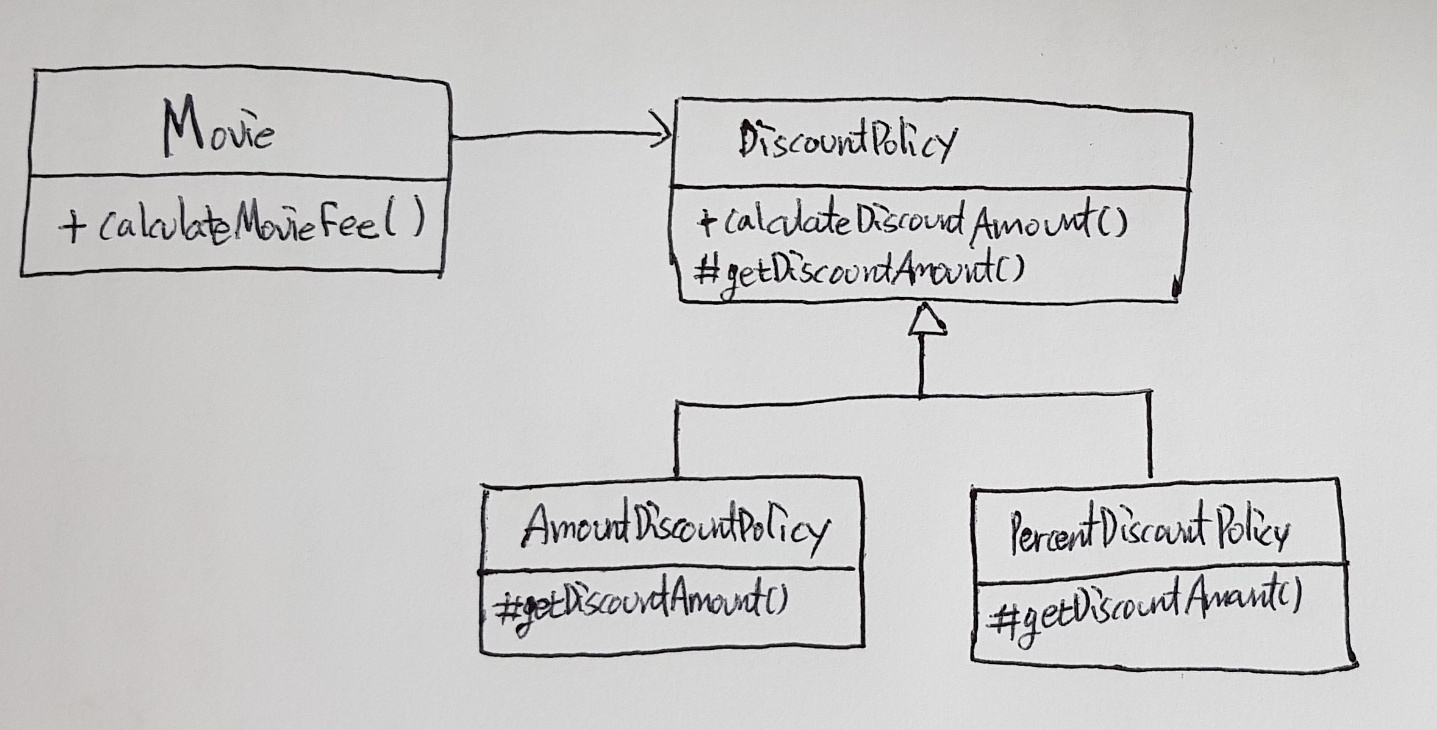 Movie
+ calculateMovieFee()
DiscountPolicy
+calculateDiscountAmount()
#getDiscountAmount()
AmountDiscountPolicy
#getDiscountAmount()
PercentDiscountPolicy
#getDiscountAmount()